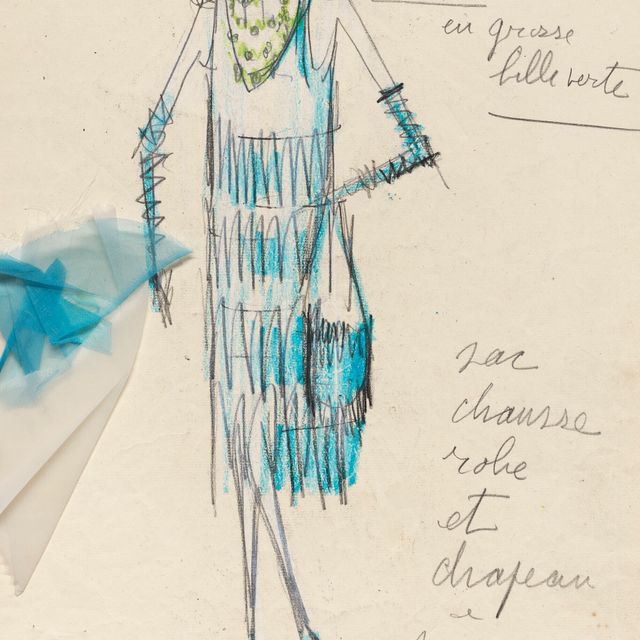 en grosse
bille verte
sac
chausse
robe
et
chapeau